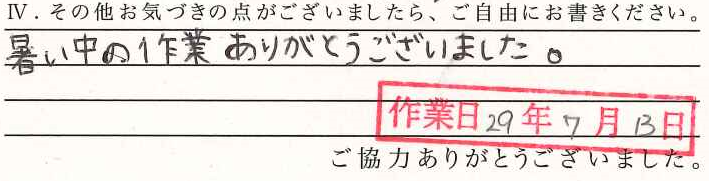 Ⅳ．その他お気づきの点がございましたら、ご自由にお書きください。
暑い中の作業ありがとうございました。
作業日29年7月13日
ご協力ありがとうございました。